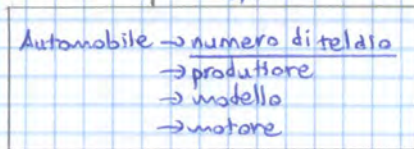 Automobile → numero di telaio
→ produttore
→ modello
→ motore